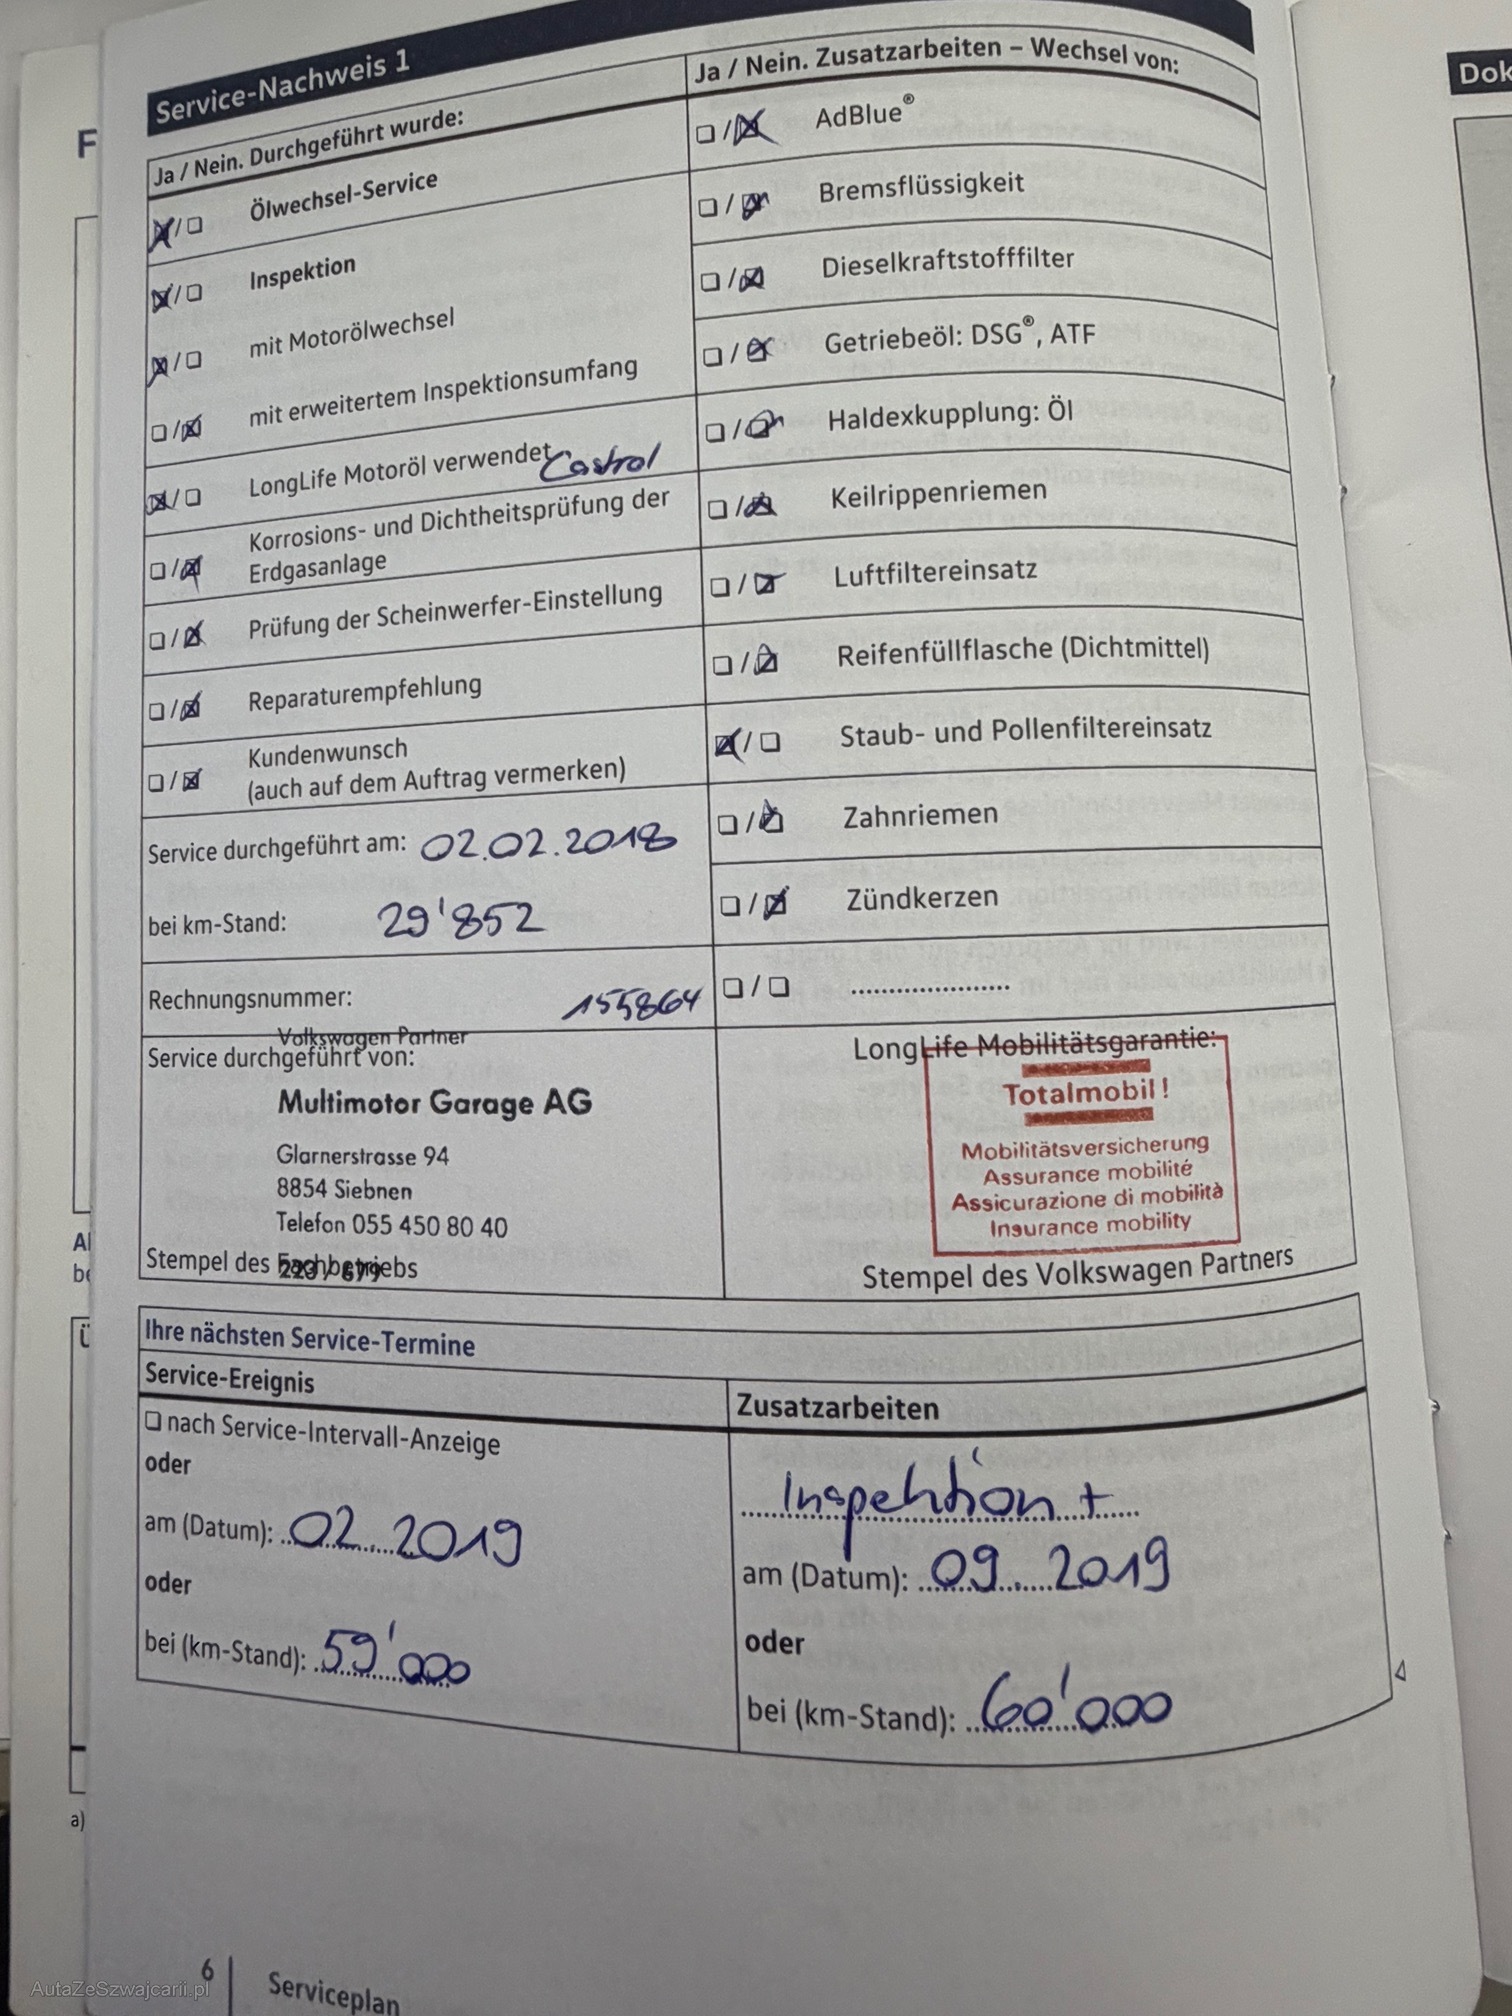 Service-Nachweis 1
Ja / Nein. Durchgeführt wurde:
Ölwechsel-Service
Inspektion
mit Motorölwechsel
mit erweitertem Inspektionsumfang
LongLife Motoröl verwendet Castrol
Korrosions- und Dichtheitsprüfung der
Erdgasanlage
Prüfung der Scheinwerfer-Einstellung
Reparaturempfehlung
Kundenwunsch
(auch auf dem Auftrag vermerken)
Service durchgeführt am: 02.02.2018
bei km-Stand: 29'852
Rechnungsnummer: 155864
Volkswagen Partner
Service durchgeführt von:
Multimotor Garage AG
Glarnerstrasse 94
8854 Siebnen
Telefon 055 450 80 40
Stempel des Fachbetriebs
Ja / Nein. Zusatzarbeiten – Wechsel von:
AdBlue®
Bremsflüssigkeit
Dieselkraftstofffilter
Getriebeöl: DSG®, ATF
Haldexkupplung: Öl
Keilrippenriemen
Luftfiltereinsatz
Reifenfüllflasche (Dichtmittel)
Staub- und Pollenfiltereinsatz
Zahnriemen
Zündkerzen
LongLife Mobilitätsgarantie:
Totalmobil!
Mobilitätsversicherung
Assurance mobilité
Assicurazione di mobilità
Insurance mobility
Stempel des Volkswagen Partners
Ihre nächsten Service-Termine
Service-Ereignis
nach Service-Intervall-Anzeige
oder
am (Datum): 02 2019
oder
bei (km-Stand): 59'000
Zusatzarbeiten
Inspektion +
am (Datum): 09 2019
oder
bei (km-Stand): 60'000
6
Serviceplan
a)
Dok
AutaZeSzwajcarii.pl